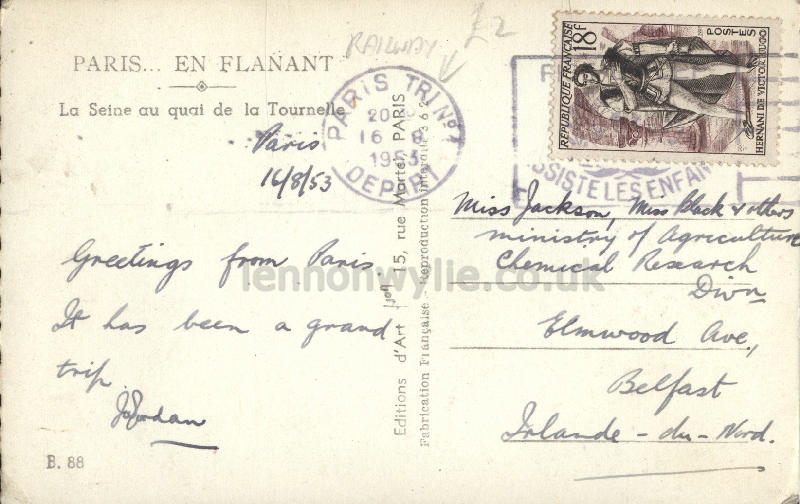 £2
RAILWAY
PARIS... EN FLANANT
La Seine au quai de la Tournelle
PARIS TRI No 1
20
16 - 8
1953
DEPART
RÉPUBLIQUE FRANÇAISE
18F
POSTES
HERNANI DE VICTOR HUGO
ASSISTE LES ENFAN
Paris
16/8/53
Greetings from Paris.
It has been a grand
trip.
B. 88
Editions d'Art 15, rue Martel, PARIS
Fabrication Française - Reproduction interdite 362
Miss Jackson, Miss Black & others
ministry of Agriculture
Chemical Research
Divn
Elmwood Ave.,
Belfast
Irlande - du - Nord.
lennonwylie.co.uk